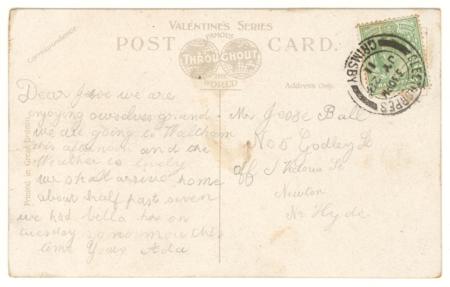 VALENTINE'S SERIES
FAMOUS
POST CARD.
THROUGHOUT
WORLD
Correspondence.
Address Only.
Printed in Great Britain.
CLEETHORPES
GRIMSBY
Dear Jesse we are
enjoying ourselves grand
we are going to Waltham
this afternoon and the
Weather is lovely
we shall arrive home
about half past seven
we had bella here on
tuesday
time Yours Ada
Mr Jesse Ball
No 5 Godley St
off Victoria St
Newton
Nr Hyde